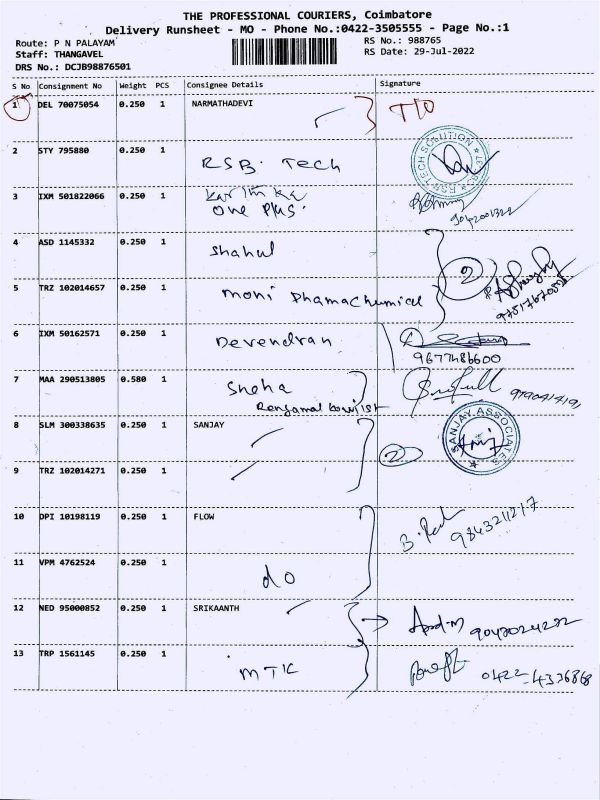 THE PROFESSIONAL COURIERS, Coimbatore
Delivery Runsheet - MO - Phone No.:0422-3505555 - Page No.:1
Route: P N PALAYAM
RS No.: 988765
Staff: THANGAVEL
RS Date: 29-Jul-2022
DRS No.: DCJB98876501
S No Consignment No Weight PCS Consignee Details Signature
1 DEL 70075054 0.250 1 NARMATHADEVI
2 STY 795880 0.250 1 RSB. Tech
3 IXM 501822066 0.250 1
One Plus.
4 ASD 1145332 0.250 1 Shahul
2
5 TRZ 102014657 0.250 1 Moni
6 IXM 50162571 0.250 1 Devendran
9677486600
7 MAA 290513805 0.580 1 Sneha
8 SLM 300338635 0.250 1 SANJAY
SANJAY ASSOCIATES
2
9 TRZ 102014271 0.250 1
10 DPI 10198119 0.250 1 FLOW
9843211217
11 VPM 4762524 0.250 1 do
12 NED 95000852 0.250 1 SRIKAANTH
13 TRP 1561145 0.250 1 MTK
0422-4336868